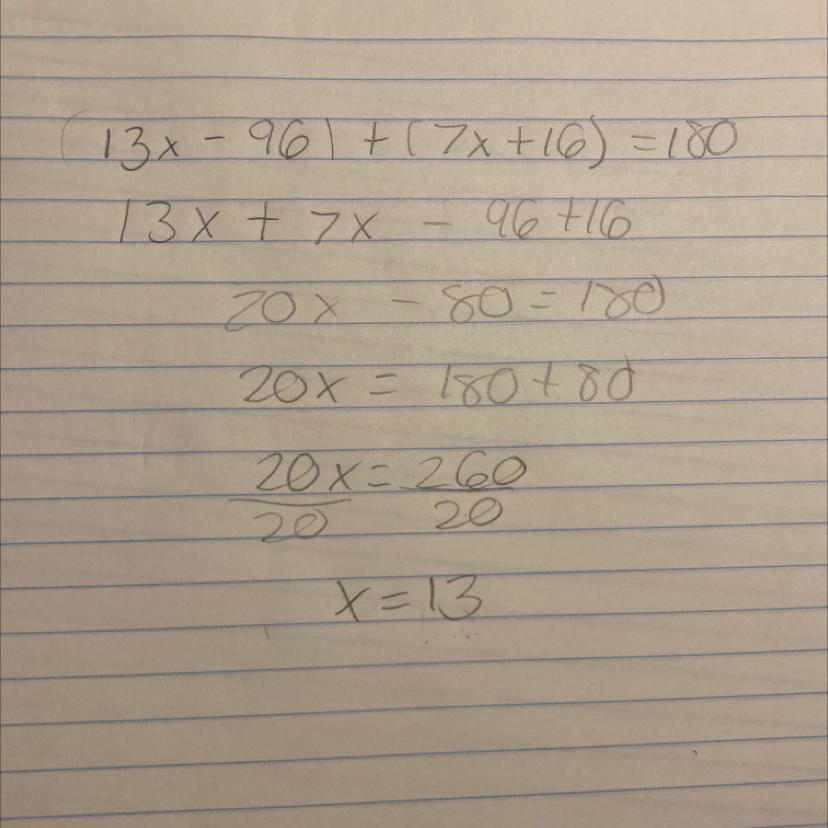 (13x - 96) + (7x + 16) = 180
13x + 7x - 96 + 16
20x - 80 = 180
20x = 180 + 80
20x = 260
20 20
x = 13